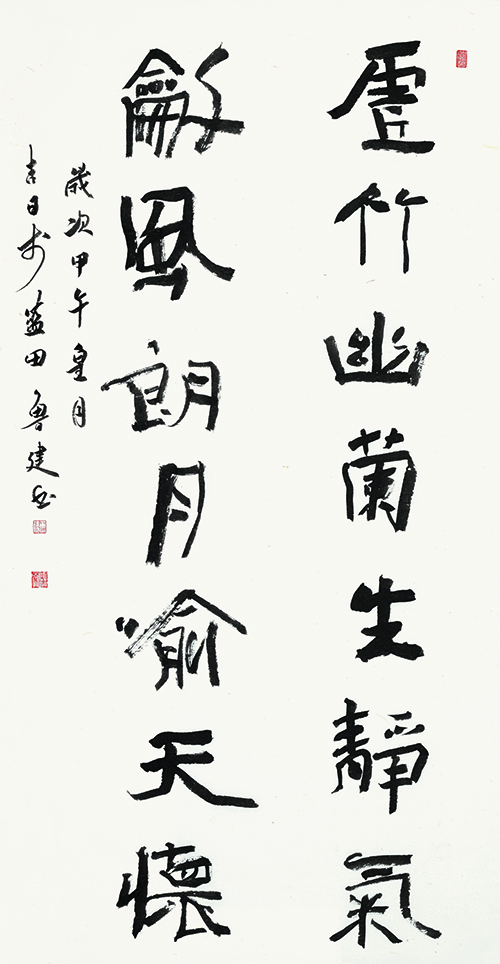 虛竹幽蘭生靜氣
龢風朗月喻天懷
歲次甲午皇月
吉日於藍田魯建